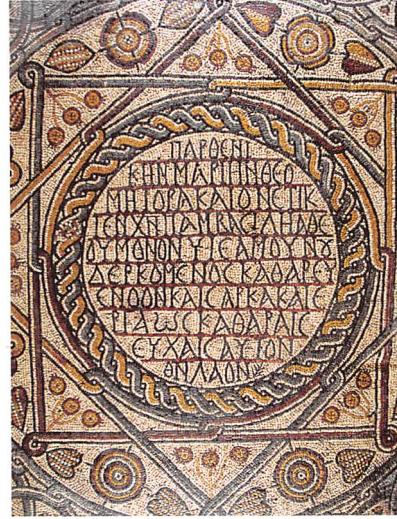 ΠΑΡΘΕΝΙ
ΚΗΝ ΜΑΡΙΗΝ ΘΕΟ
ΜΗΤΟΡΑ ΚΑΙ ΟΝ ΕΤΙΚ
ΤΕΝ ΧΝ ΠΑΜΒΑCΙΛΗΑ ΘΕ
ΟΥ ΜΟΝΟΝ ΥΙΕΑ ΜΟΥΝΟΥ
ΔΕΡΚΟΜΕΝΟC ΚΑΘΑΡΕΥ
Ε ΝΟΟΝ ΚΑΙ CΑΡΚΑ ΚΑΙ Ε
ΡΓΑ ΩC ΚΑΘΑΡΑΙC
ΕΥΧΑΙC ΑΥΤΟΝ
ΘΝ ΛΑΟΝ